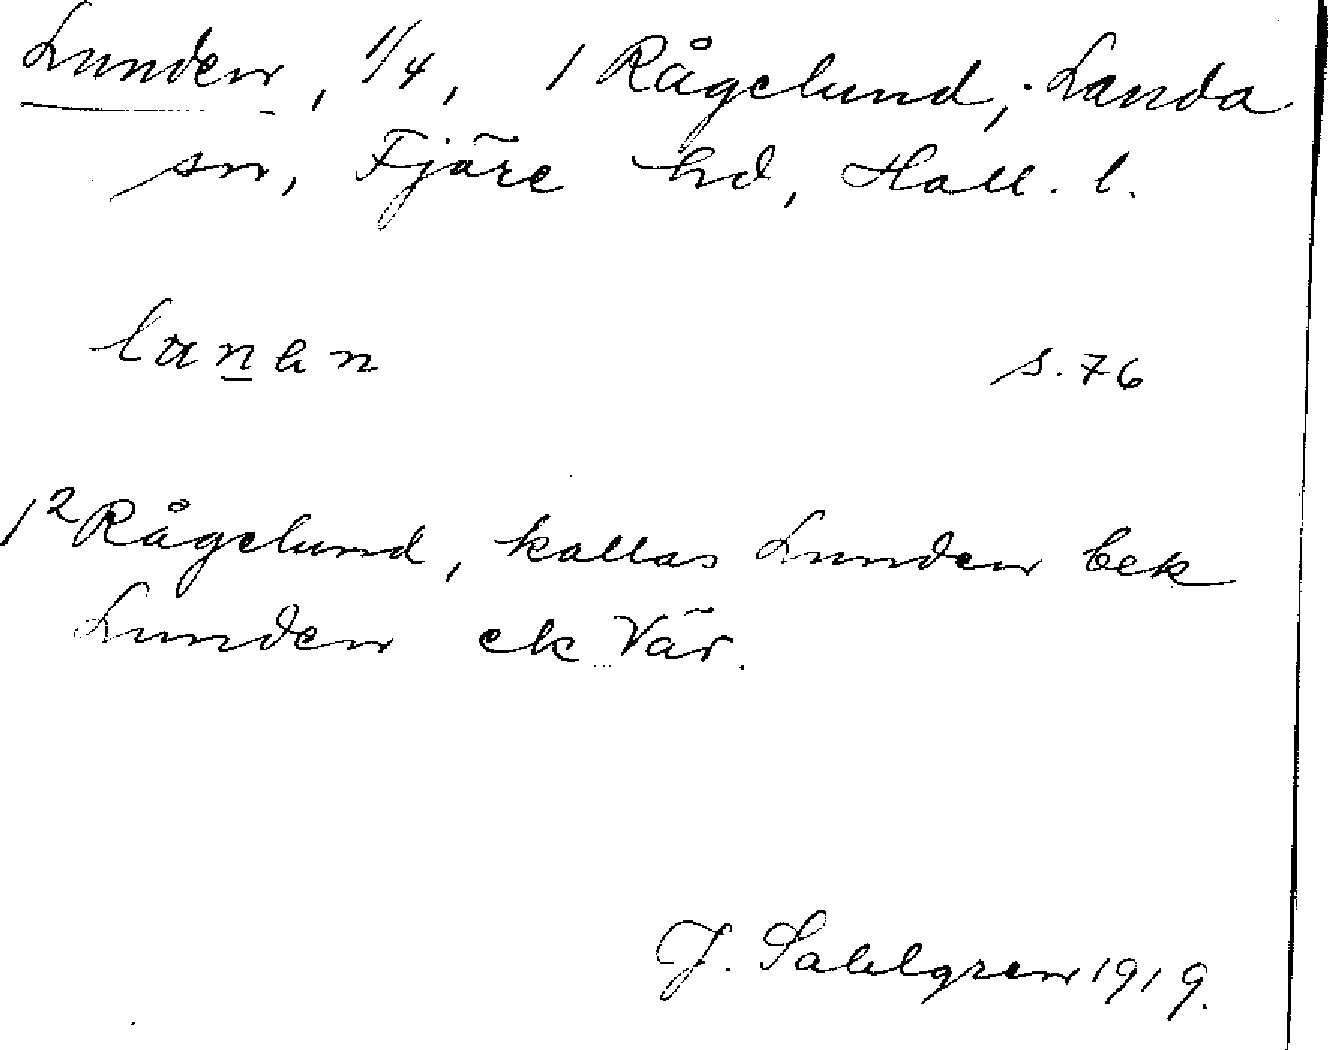 Lunden, 1/4, 1 Rågelund, Landa
sn, Fjäre hd, Hall. l.
s. 76
1² Rågelund, kallas Lunden bek
Lunden ek Vär.
J. Sahlgren 1919.